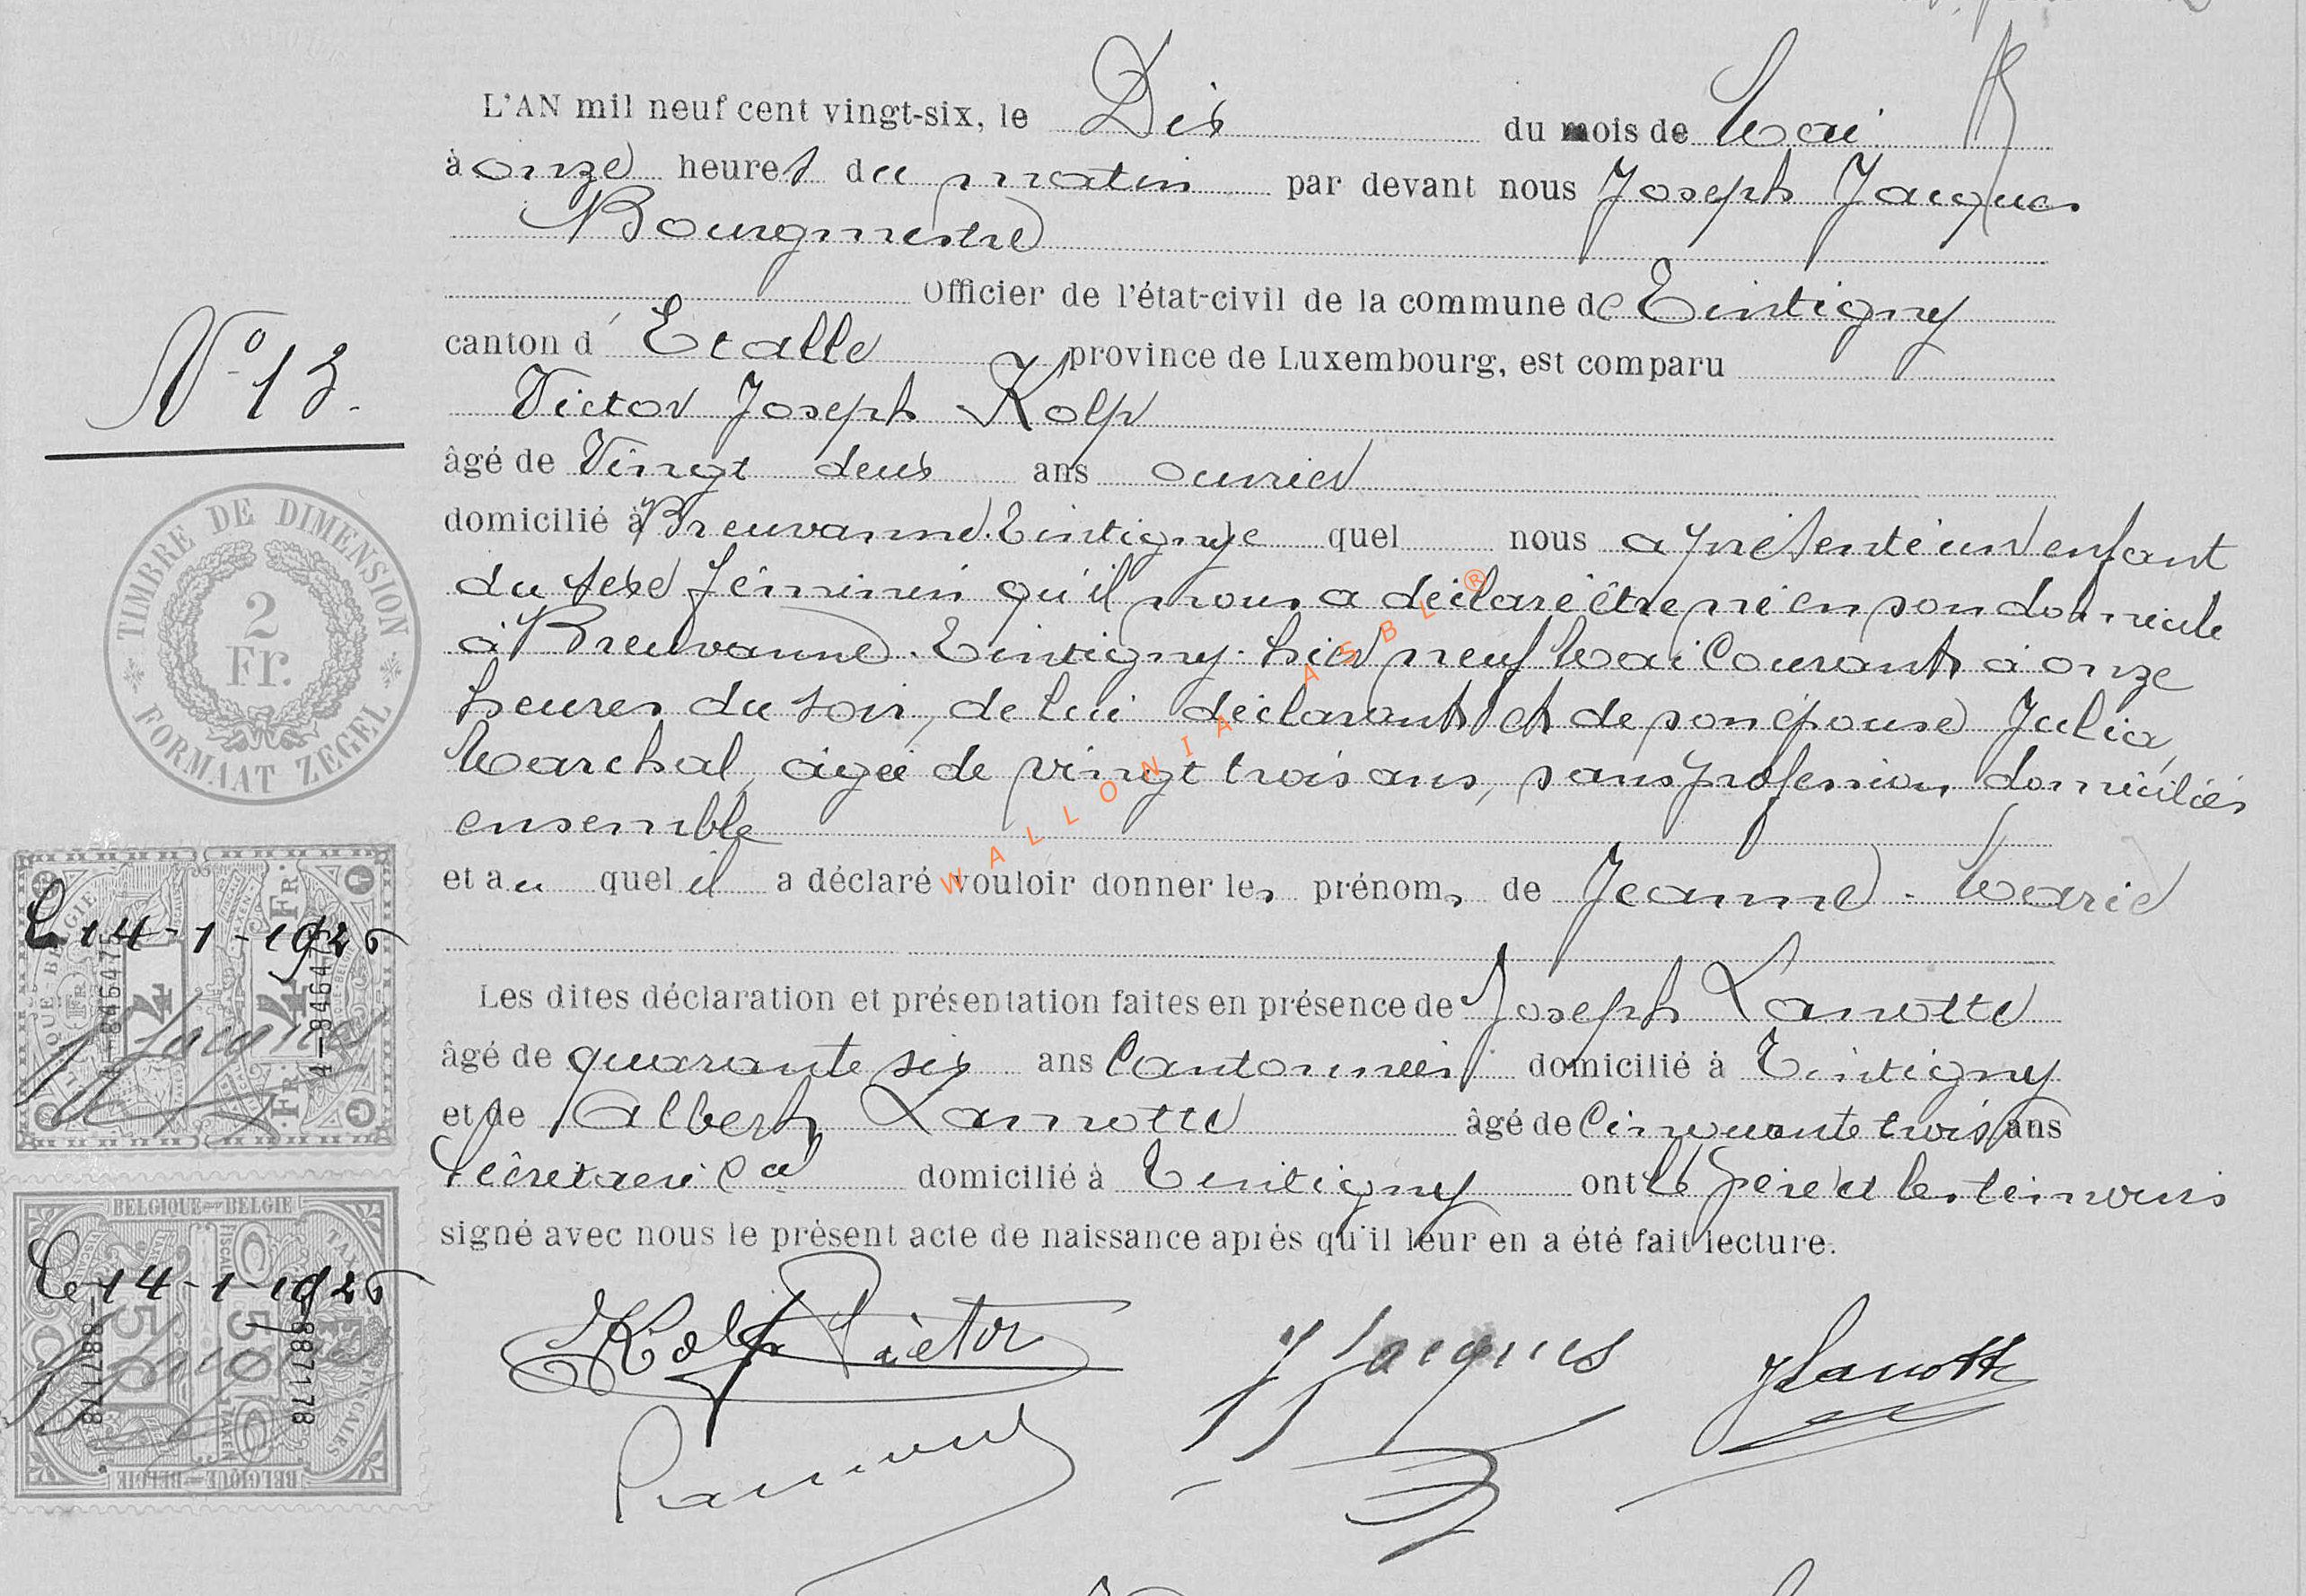 L'AN mil neuf cent vingt-six, le Dix du mois de Mai
à onze heures du matin par devant nous Joseph Jacques
Bourgmestre
Officier de l'état-civil de la commune de Tintigny
canton d'Etalle province de Luxembourg, est comparu
Victor Joseph Kolp
âgé de Vingt deux ans ouvrier
domicilié à Breuvanne.Tintigny le quel nous a présenté un enfant
du sexe féminin qu'il nous a déclaré être né en son domicile
à Breuvanne. Tintigny. hier neuf Mai Courant à onze
heures du soir, de lui déclarant et de son épouse Julia
Marchal, âgée de vingt trois ans, sans profession domiciliés
ensemble
et au quel il a déclaré vouloir donner les prénoms de Jeanne-Marie
Les dites déclaration et présentation faites en présence de Joseph Lamotte
âgé de quarante six ans Cantonnier domicilié à Tintigny
et de Albert Lamotte âgé de Cinquante trois ans
Secrétaire Cal domicilié à Tintigny ont le père et les témoins
signé avec nous le présent acte de naissance après qu'il leur en a été fait lecture.
Kolp Victor
J Jacques
J Lamotte
N° 13.
TIMBRE DE DIMENSION
2
Fr.
FORMAAT ZEGEL
14-1-1926
4 4
FR. FR.
J Jacques
BELGIQUE-BELGIE
14-1-1926
50 50
887178 887178
J Jacques
BELGIQUE-BELGIE
WALLONIA ASBL ®